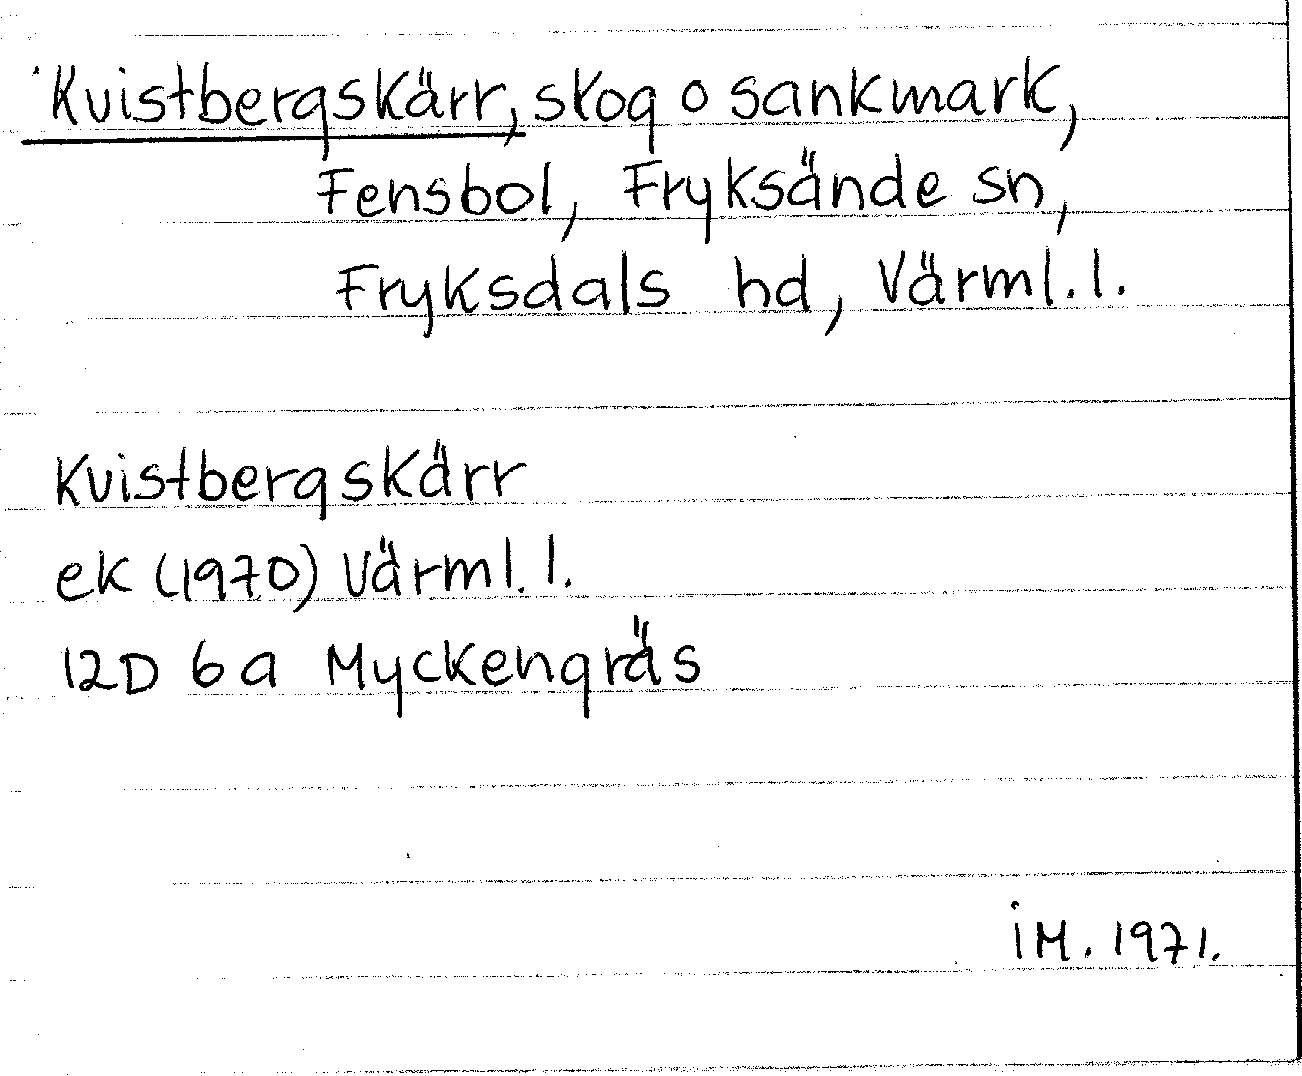 Kvistbergskärr, skog o sankmark,
Fensbol, Fryksände sn,
Fryksdals hd, Värml. l.
Kvistbergskärr
ek (1970) Värml. l.
12D 6a Myckengräs
IM. 1971.